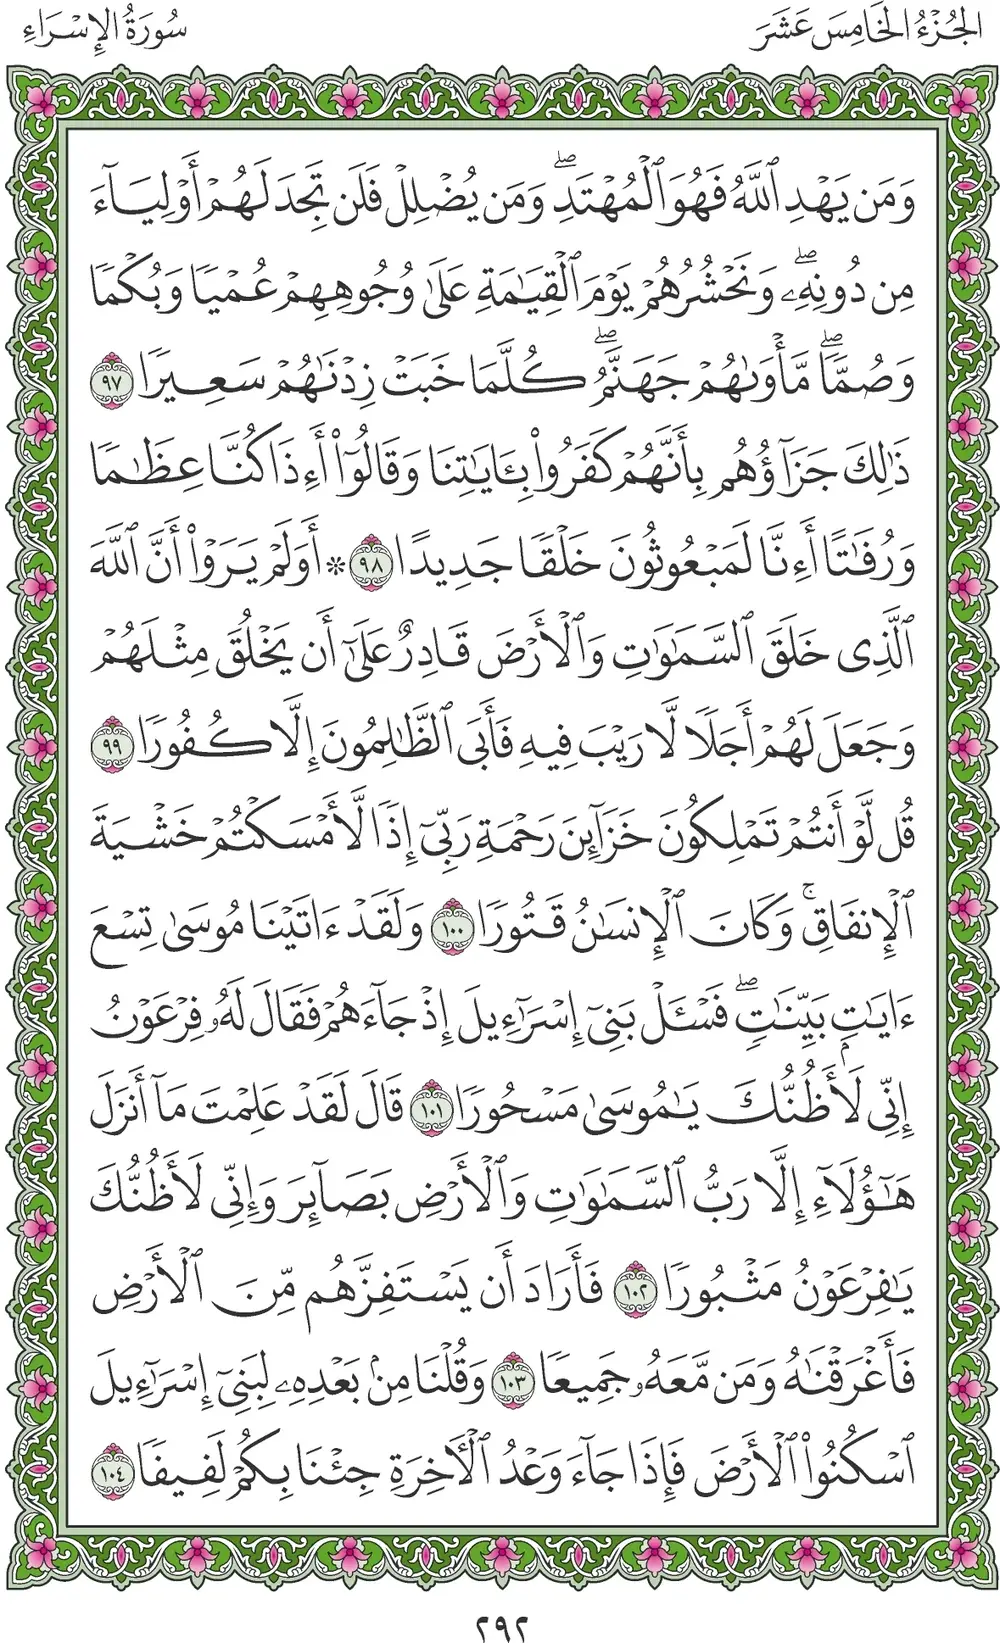 الجُزْءُ الخَامِسَ عَشَرَ
سُورَةُ الإِسْرَاءِ
وَمَن يَهْدِ ٱللَّهُ فَهُوَ ٱلْمُهْتَدِۖ وَمَن يُضْلِلْ فَلَن تَجِدَ لَهُمْ أَوْلِيَآءَ
مِن دُونِهِۦۖ وَنَحْشُرُهُمْ يَوْمَ ٱلْقِيَٰمَةِ عَلَىٰ وُجُوهِهِمْ عُمْيًا وَبُكْمًا
وَصُمًّاۖ مَّأْوَىٰهُمْ جَهَنَّمُۖ كُلَّمَا خَبَتْ زِدْنَٰهُمْ سَعِيرًا ٩٧
ذَٰلِكَ جَزَآؤُهُم بِأَنَّهُمْ كَفَرُوا۟ بِـَٔايَٰتِنَا وَقَالُوٓا۟ أَءِذَا كُنَّا عِظَٰمًا
وَرُفَٰتًا أَءِنَّا لَمَبْعُوثُونَ خَلْقًا جَدِيدًا ٩٨ * أَوَلَمْ يَرَوْا۟ أَنَّ ٱللَّهَ
ٱلَّذِى خَلَقَ ٱلسَّمَٰوَٰتِ وَٱلْأَرْضَ قَادِرٌ عَلَىٰٓ أَن يَخْلُقَ مِثْلَهُمْ
وَجَعَلَ لَهُمْ أَجَلًا لَّا رَيْبَ فِيهِ فَأَبَى ٱلظَّٰلِمُونَ إِلَّا كُفُورًا ٩٩
قُل لَّوْ أَنتُمْ تَمْلِكُونَ خَزَآئِنَ رَحْمَةِ رَبِّىٓ إِذًا لَّأَمْسَكْتُمْ خَشْيَةَ
ٱلْإِنفَاقِۚ وَكَانَ ٱلْإِنسَٰنُ قَتُورًا ١٠٠ وَلَقَدْ ءَاتَيْنَا مُوسَىٰ تِسْعَ
ءَايَٰتٍۭ بَيِّنَٰتٍۖ فَسْـَٔلْ بَنِىٓ إِسْرَٰٓءِيلَ إِذْ جَآءَهُمْ فَقَالَ لَهُۥ فِرْعَوْنُ
إِنِّى لَأَظُنُّكَ يَٰمُوسَىٰ مَسْحُورًا ١٠١ قَالَ لَقَدْ عَلِمْتَ مَآ أَنزَلَ
هَٰٓؤُلَآءِ إِلَّا رَبُّ ٱلسَّمَٰوَٰتِ وَٱلْأَرْضِ بَصَآئِرَ وَإِنِّى لَأَظُنُّكَ
يَٰفِرْعَوْنُ مَثْبُورًا ١٠٢ فَأَرَادَ أَن يَسْتَفِزَّهُم مِّنَ ٱلْأَرْضِ
فَأَغْرَقْنَٰهُ وَمَن مَّعَهُۥ جَمِيعًا ١٠٣ وَقُلْنَا مِنۢ بَعْدِهِۦ لِبَنِىٓ إِسْرَٰٓءِيلَ
ٱسْكُنُوا۟ ٱلْأَرْضَ فَإِذَا جَآءَ وَعْدُ ٱلْـَٔاخِرَةِ جِئْنَا بِكُمْ لَفِيفًا ١٠٤
٢٩٢